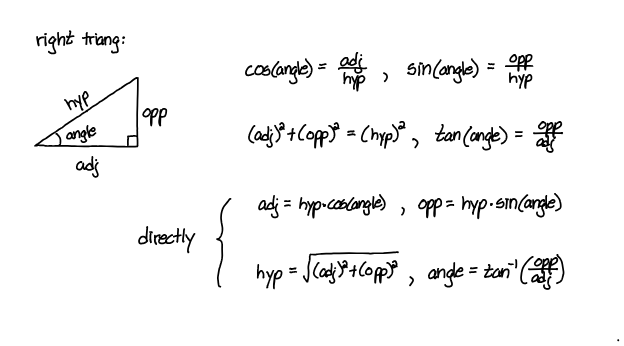 right triang:
hyp
opp
angle
adj
cos(angle) = adj/hyp , sin(angle) = opp/hyp
(adj)² + (opp)² = (hyp)² , tan(angle) = opp/adj
directly
adj = hyp·cos(angle) , opp = hyp·sin(angle)
hyp = √((adj)² + (opp)²) , angle = tan⁻¹(opp/adj)